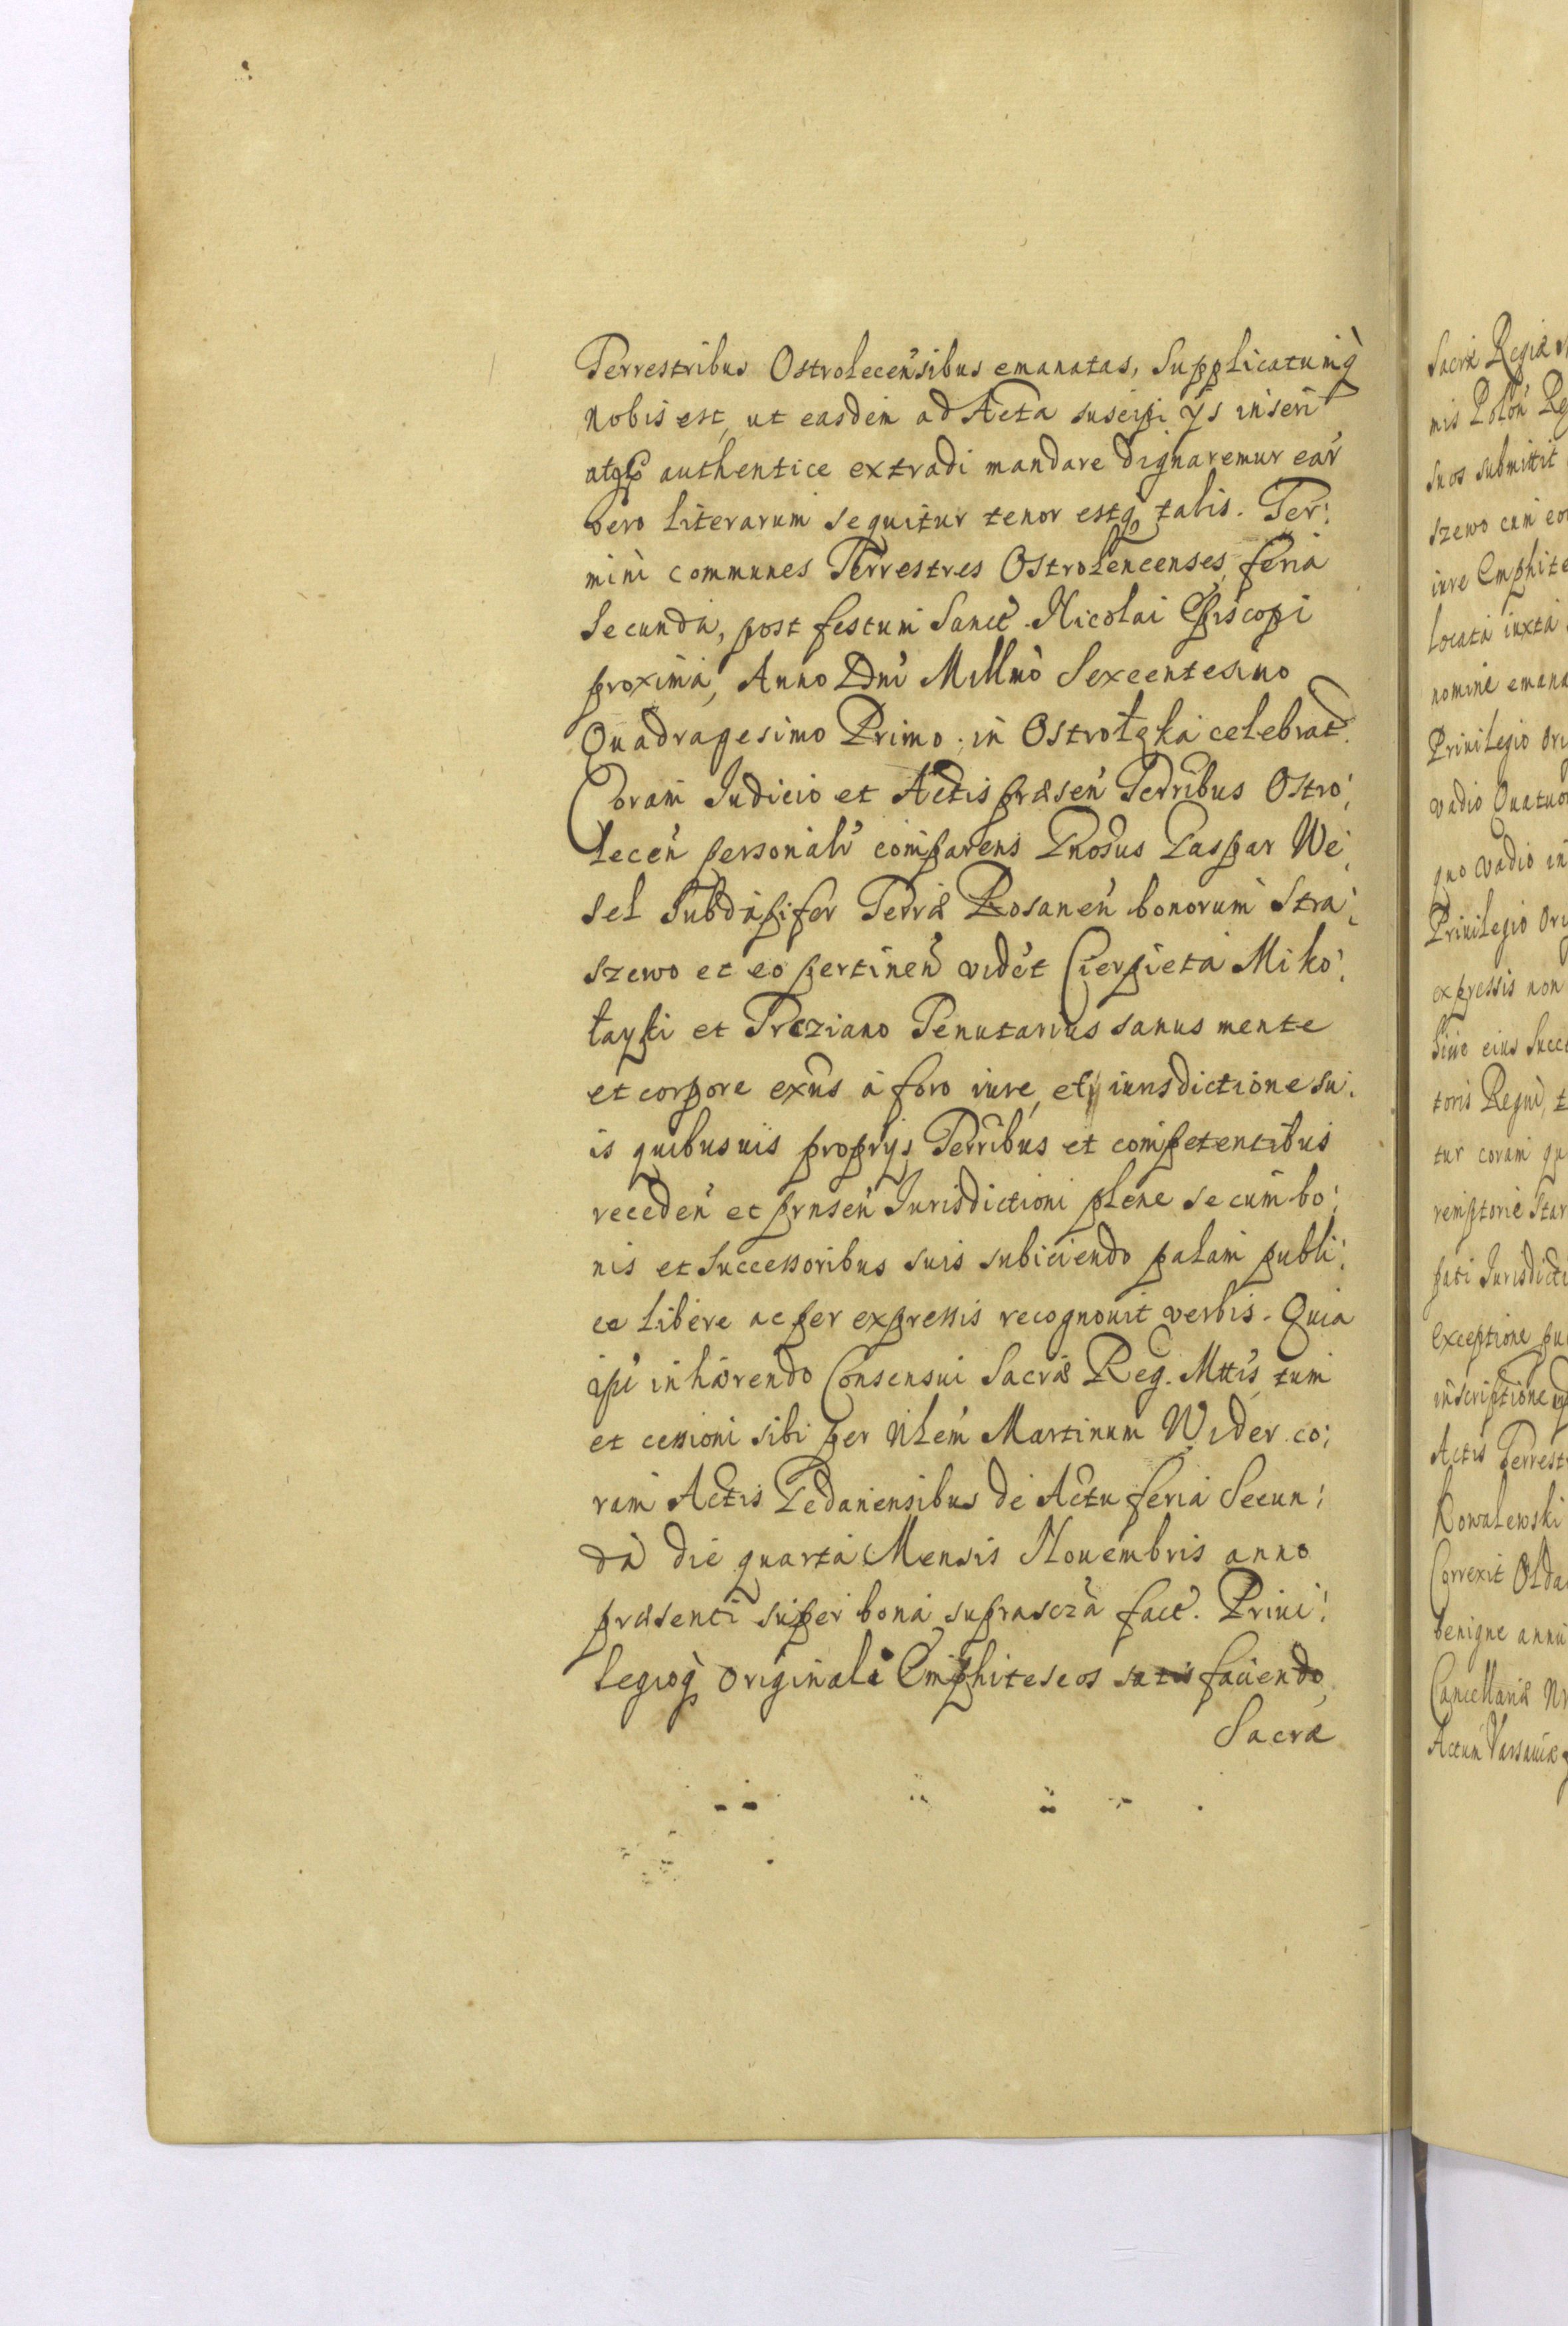 Terrestribus Ostrolecensibus emanatas, Supplicatumq
nobis est, ut easdem ad Acta suscipi ijs inseri
atq authentice extradi mandare dignaremur ear
vero literarum sequitur tenor estq talis. Ter:
mini communes Terrestres Ostrolencenses, feria
Secunda, post festum Sanct. Nicolai Episcopi
proxima, Anno Dni Millmo Sexcentesimo
Quadragesimo Primo. in Ostrołęka celebrat.
Coram Iudicio et Actis præsen Terribus Ostro:
lecen personalr comparens Gnosus Caspar We:
sel Subdapifer Terræ Rosanen bonorum Stra:
szewo et eo pertinen videt Cierpieta Miko:
łayki et Tenutarius sanus mente
et corpore exns a foro iure, et iurisdictione su:
is quibusuis proprijs Terribus et competentibus
receden et prnsen Iurisdictioni plene se cum bo:
nis et Successoribus suis subiiciendo palam publi:
ce libere ac per expressis recognouit verbis. Quia
ipse inhærendo Consensui Sacræ Reg. Mttis tum
et cessioni sibi per Nlem Martinum Wider co:
ram Actis Gedanensibus de Actu feria Secun:
da die quarta Mensis Nouembris anno
præsenti super bona suprascra fact. Priui:
legioq originali Emphiteseos satis faciendo
Sacræ
Sacræ Regiæ
mis Polon Re
suos submittit
szewo cum eo
iure Emphite
locata iuxta
nomine emana
Priuilegio Ori
vadio Quatuo
quo vadio in
Priuilegio Ori
expressis non
siue eius Succe
toris Regni, t
tur coram qu
remptorie Star
pati Iurisdicti
exceptione pu
inscriptione
Actis Terrest
Kowalewski
Correxit Olda
benigne annu
Cancellariæ Nr
Actum Varsauiæ